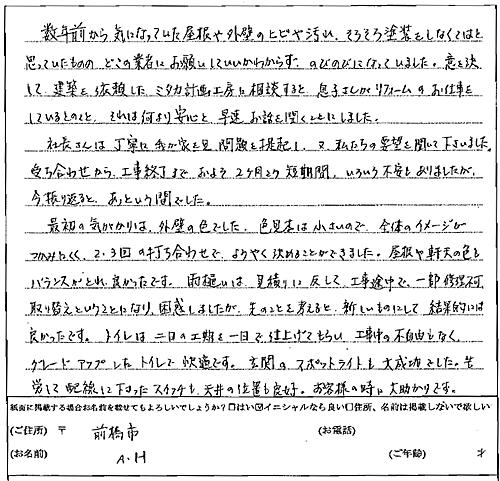 数年前から気になっていた屋根や外壁のヒビや汚れ、そろそろ塗装をしなくてはと
思っていたものの、どこの業者にお願いしていいかわからず、のびのびになっていました。意を決
して、建築を依頼したミタカ計画工房に相談すると、息子さんがリフォームのお仕事を
しているとのこと、それは何より安心と早速お話を聞くことにしました。
社長さんは、丁寧に我が家を見、問題を提起し、又、私たちの要望を聞いて下さいました。
受ち合わせから、工事終了まで、およそ2ヶ月という短期間、いろいろ不安もありましたが、
今振り返ると、あっという間でした。
最初の気がかりは、外壁の色でした。色見本は小さいので、全体のイメージが
つかみにくく、2・3回の打ち合わせで、ようやく決めることができました。屋根や軒天の色も
バランスがとれ、良かったです。雨樋は、見積りに反して、工事途中で、一部修理不可
取り替えということになり、困惑しましたが、先のことを考えると、新しいものにして、結果的には
良かったです。トイレは二日の工期を一日で、仕上げてもらい、工事中の不自由もなく、
グレードアップしたトイレで快適です。玄関のスポットライトも大成功でした。苦
労して配線して下さったスイッチも、天井の位置も良好。お客様の時に大助かりです。
紙面に掲載する場合お名前を載せてもよろしいでしょうか?□はい☑イニシャルなら良い□住所、名前は掲載しないで欲しい
(ご住所) 〒 前橋市 (お電話)
(お名前) A.H (ご年齢) 才